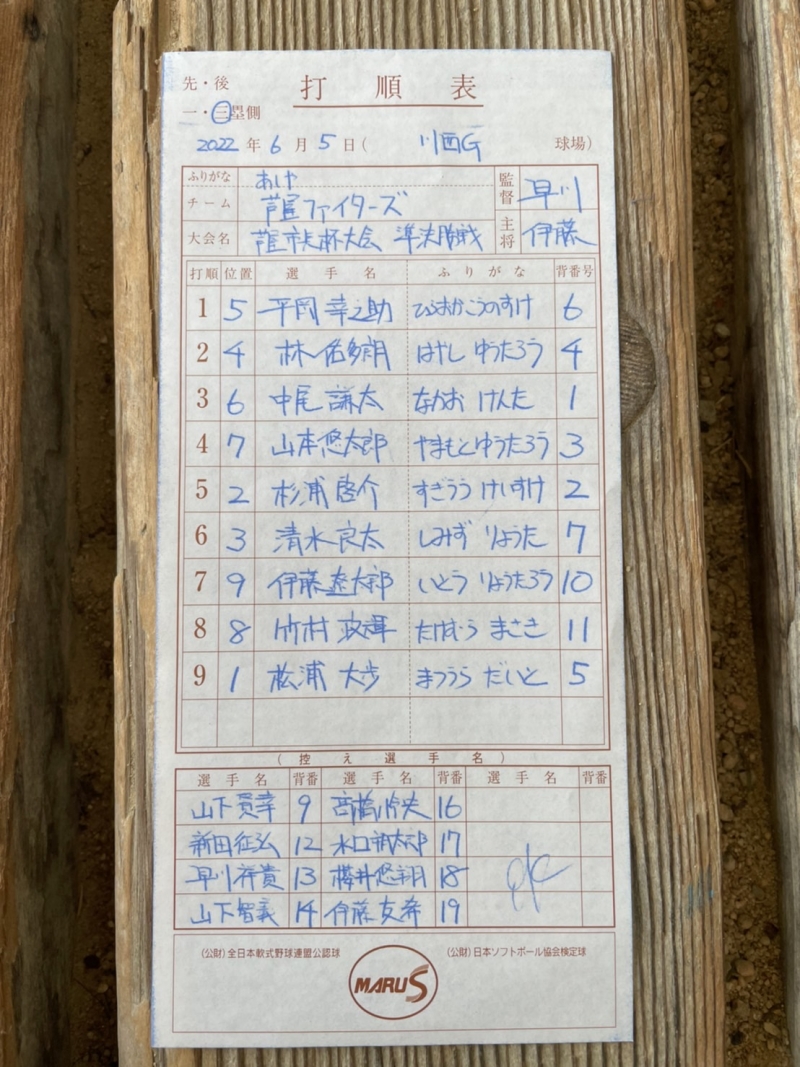 先・後 打順表
一・三塁側
2022年6月5日( 川西G 球場)
ふりがな あしや 監督 早川
チーム 芦屋ファイターズ
大会名 芦屋市長杯大会 準決勝戦 主将 伊藤
打順 位置 選手名 ふりがな 背番号
1 5 平岡幸之助 ひらおかこうのすけ 6
2 4 林佑多朗 はやし ゆうたろう 4
3 6 中尾謙太 なかお けんた 1
4 7 山本悠太郎 やまもとゆうたろう 3
5 2 杉浦啓介 すぎうら けいすけ 2
6 3 清水良太 しみず りょうた 7
7 9 伊藤遼太郎 いとう りょうたろう 10
8 8 竹村政輝 たけむら まさき 11
9 1 松浦大歩 まつうら だいと 5
(控え選手名)
選手名 背番 選手名 背番 選手名 背番
山下貴幸 9 16
新田征弘 12 水口 17
早川祥貴 13 櫻井悠翔 18
山下智義 14 伊藤友希 19
(公財)全日本軟式野球連盟公認球 (公財)日本ソフトボール協会検定球
MARU S